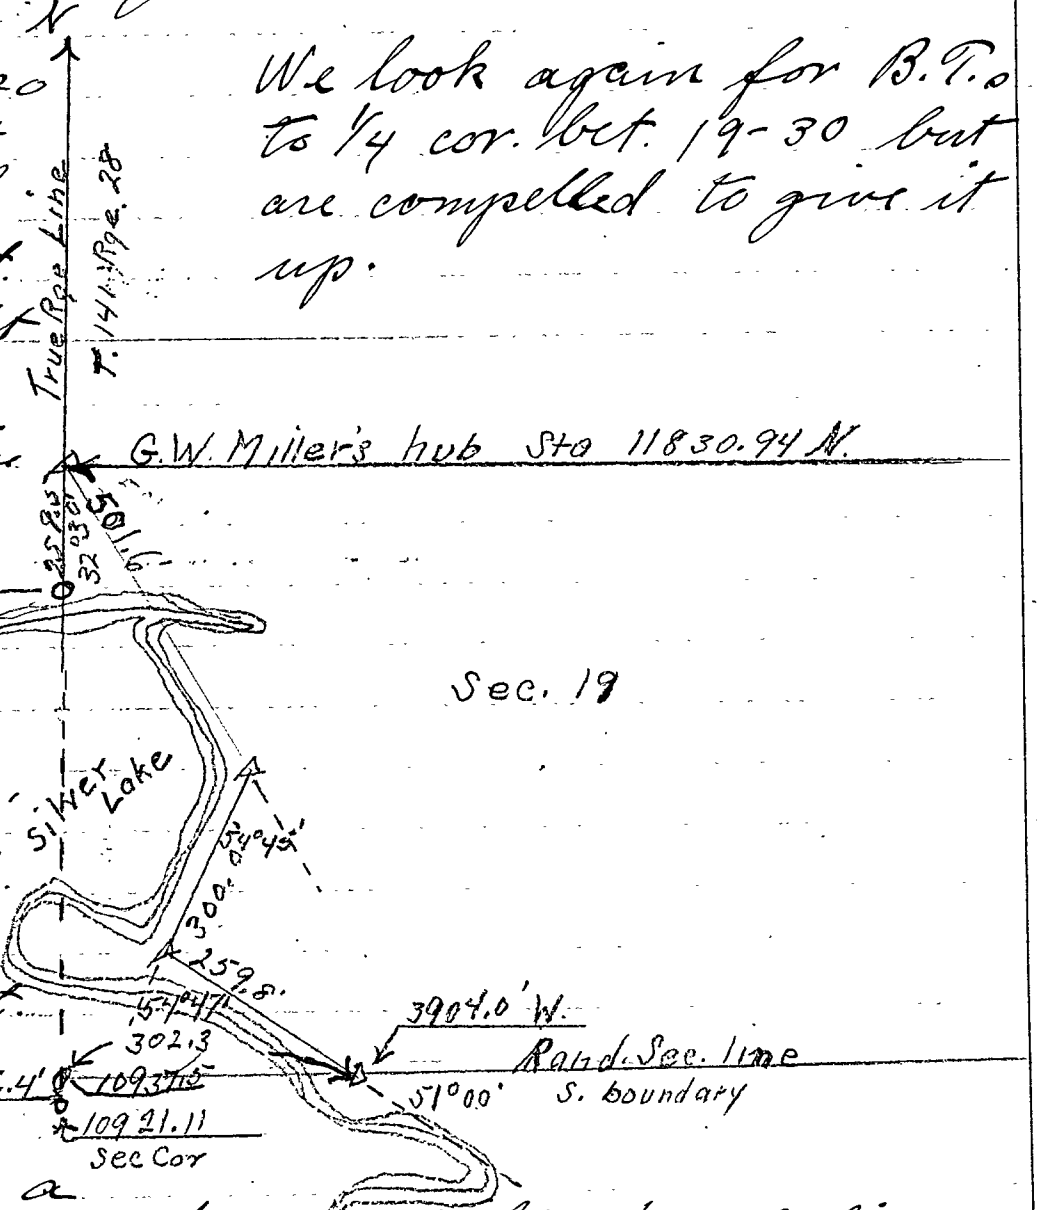 N
We look again for B.T.s
to 1/4 cor. bet. 19-30 but
are compelled to give it
up.
20
True Rge Line
T. 141 Rge. 28
G.W. Miller's hub Sta 11830.94 N.
501.6
32°30'
Sec. 19
Silver
Lake
54°45'
300.0
259.8
54°47'
302.3
3904.0' W.
Rand. Sec. line
S. boundary
51°00'
.4'
10937.5
10921.11
Sec Cor
a